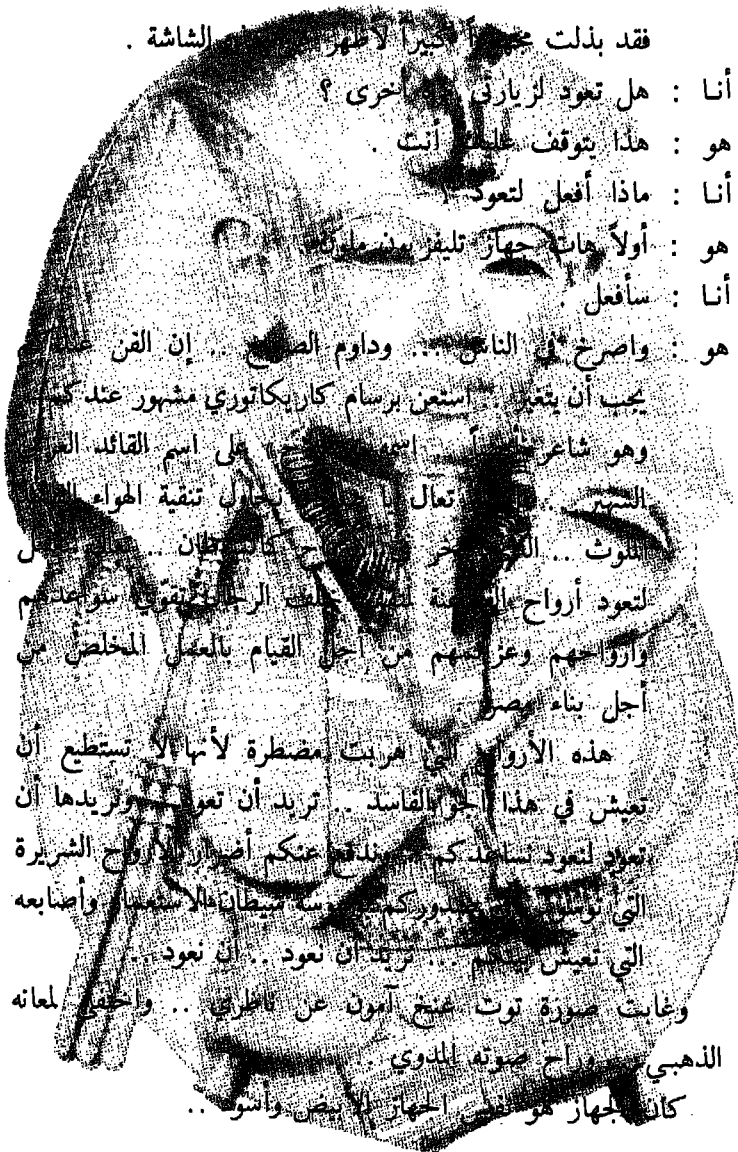 فقد بذلت كبيراً لأظهر الشاشة .
أنا : هل تعود لزيارتي أخرى ؟
هو : هذا يتوقف عليك أنت .
أنا : ماذا أفعل لتعود ؟
هو : أولاً هات جهاز تليفزيون ملون .
أنا : سأفعل .
هو : واصرخ في الناس ... وداوم .. إن الفن
يجب أن يتغير .. استعن برسام كاريكاتوري مشهور عندكم
وهو شاعر على اسم القائد
الشهير .. تعال يا تنقية الهواء
الملوث ..
لتعود أرواح الرجال سواعدهم
وأرواحهم وعزائمهم من أجل القيام بالعمل المخلص من
أجل بناء مصر .
هذه الأرواح التي هربت مضطرة لأنها لا تستطيع أن
تعيش في هذا الجو الفاسد .. تريد أن تعود .. ونريدها أن
تعود لنعود نساعدكم .. ندفع عنكم أضرار الأرواح الشريرة
التي صدوركم شيطان الاستعمار وأصابعه
التي تعيش بينكم ... نريد أن نعود .. أن نعود ..
وغابت صورة توت عنخ آمون عن ناظري .. واختفى لمعانه
الذهبي .. وراح صوته المدوي ..
كان الجهاز هو نفس الجهاز الأبيض وأسود ..